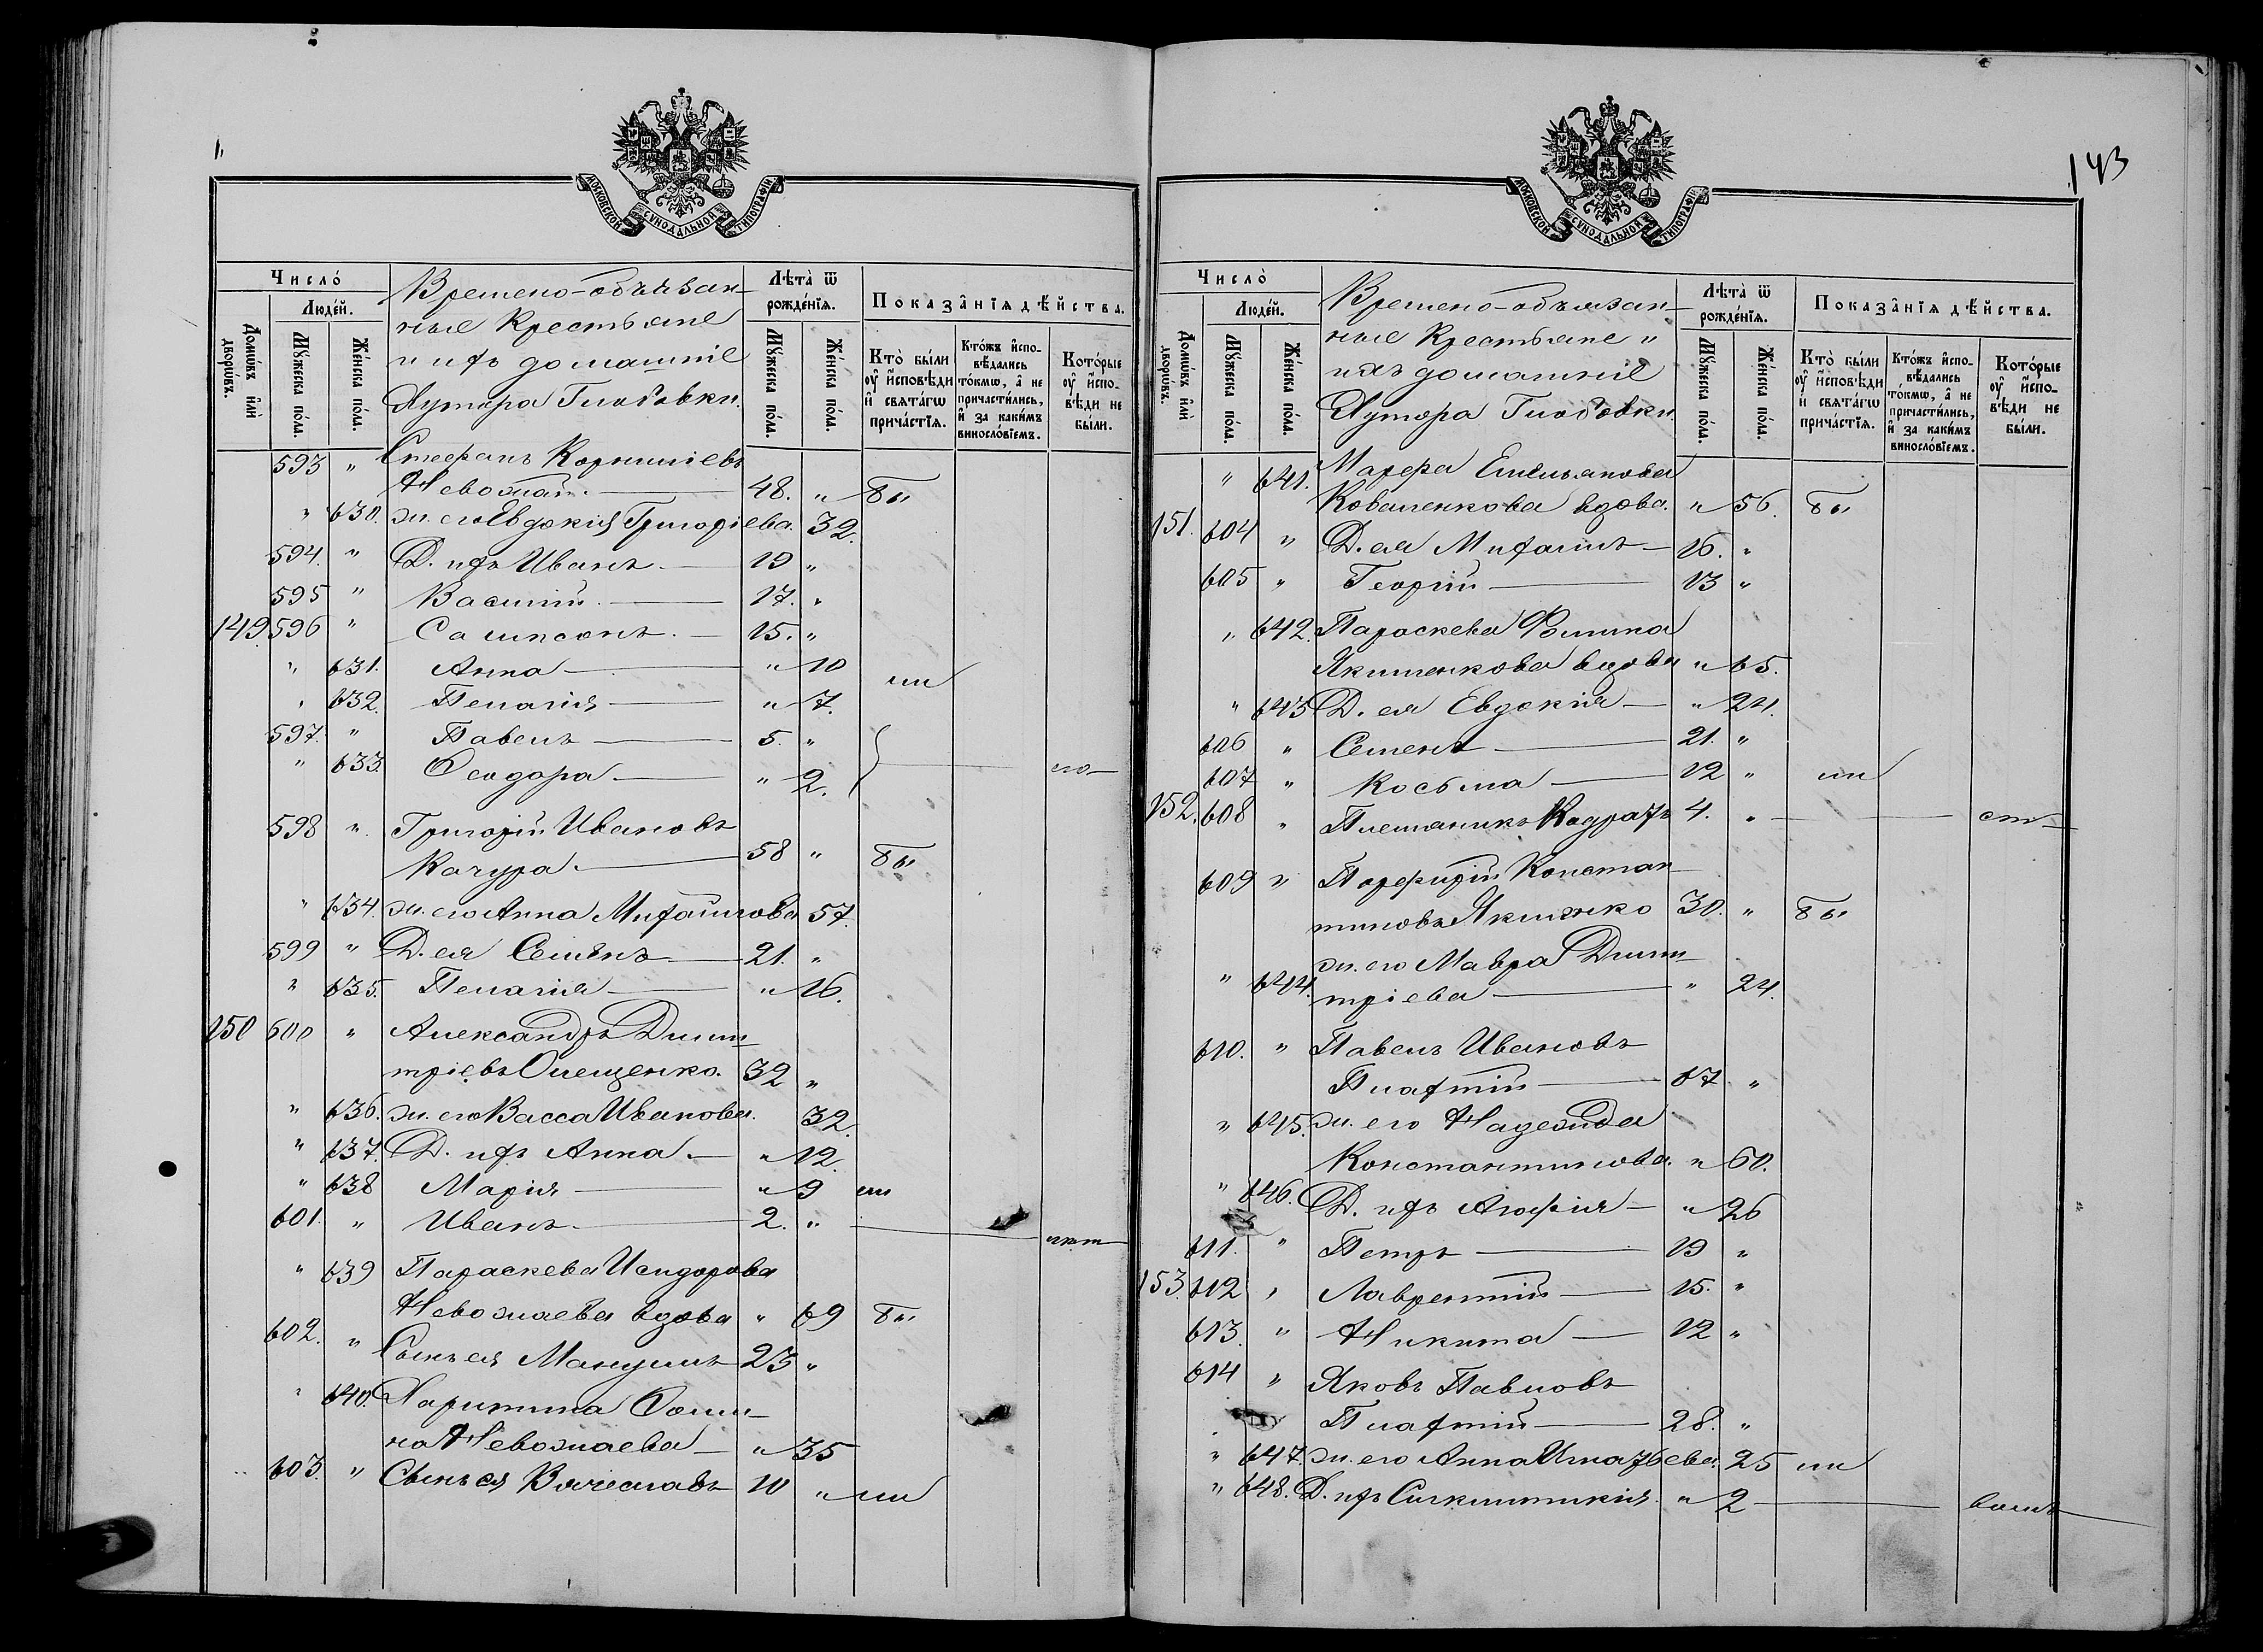 МОСКОВСКОЙ СѴНОДАЛЬНОЙ ТИПОГРАФІИ
Число́
Людей.
Домѡвъ и҆лѝ дворѡвъ.
Мꙋжеска пола.
Женска пола.
Времено-обязан-
ные Крестьяне
и ихъ домашніе
Хутора Глобовки.
Лѣта̀ ѿ рождéнїѧ.
Мꙋжеска пола.
Женска пола.
Показа̑нїѧ дѣ́йства.
Кто̀ бы́ли ᲂу҆ и҆́сповѣди и҆ свѧта́гѡ прича́стїѧ.
Кто́жъ и҆спо-вѣ́дались то́кмѡ, а҆ не причасти́лись, и҆ за каки́мъ виносло́вїемъ.
Кото́рые ᲂу҆ и҆́спо-вѣди не бы́ли.
593 „ Стефанъ Корниліевъ
48. „ бы
„ 630. ж. его Евдокія Григоріева. 32.
594. „ Д. ихъ Иванъ. — 19 „
595 „ Василій. — 17. „
149. 596 „ Сампсонъ. — 15. „
„ 631. Анна — „ 10
ли
„ 632. Пелагія — „ 7.
597. „ Павелъ — 5. „
„ 633. Ѳеодора — „ 2.
598 „ Григорій Ивановъ
Качура. — 58 „ бы
„ 634. ж. его Анна Михаилова 57.
599 „ Д. ея Семенъ — 21. „
„ 635. Пелагія — „ 16.
150 600 „ Александръ Дими-
тріевъ Олещенко. 32 „
„ 636. ж. его Васса Иванова. 32.
„ 637. Д. ихъ Анна. — „ 12.
„ 638 Марія — „ 9 ли
601. „ Иванъ. — 2. „
„ 639 Параскева Исидорова
Невожаева вдова „ 69 бы
602. „ Сынъ ея Мануилъ 23 „
„ 640. Харитина Ѳоми-
на Невожаева — „ 35
603. „ Сынъ ея Вячеславъ 10 „ ли
143
МОСКОВСКОЙ СѴНОДАЛЬНОЙ ТИПОГРАФІИ
Число̀
Людей.
Домѡвъ и҆лѝ дворѡвъ.
Мꙋжеска пола.
Женска пола.
Времено-обязан-
ные Крестьяне и
ихъ домашніе
Хутора Глобовки.
Лѣта̀ ѿ рождéнїѧ.
Мꙋжеска пола.
Женска пола.
Показа̑нїѧ дѣ́йства.
Кто̀ бы́ли ᲂу҆ и҆́сповѣди и҆ свѧта́гѡ прича́стїѧ.
Кто́жъ и҆спо-вѣ́дались то́кмѡ, а҆ не причасти́лись, и҆ за каки́мъ виносло́вїемъ.
Кото́рые ᲂу҆ и҆́спо-вѣди не бы́ли.
„ 641. Марфа Емельянова
Коваленкова вдова. „ 56. бы
151. 604 „ Д. ея Михаилъ — 16. „
605 „ Георгій — 13 „
„ 642. Параскева Фомина
Якименкова вдова „ 65.
„ 643 Д. ея Евдокія — „ 24.
606 „ Семенъ — 21. „
607 „ Косьма — 12 „ ли
152. 608 „ Племянникъ Кодратъ 4. „ — ст
609 „ Порфирій Констан-
тиновъ Якименко 30. „ бы
ж. его Мавра Дими-
„ 644. тріева — „ 24.
610. „ Павелъ Ивановъ
Плахтій — 67 „
„ 645. ж. его Надежда
Константинова. „ 60.
„ 646. Д. ихъ Агафія — „ 26
611. „ Петръ — 19 „
153. 612 „ Лаврентій — 15. „
613. „ Никита — 12 „
614 „ Яковъ Павловъ
Плахтій — 28. „
„ 647. ж. его Анна Игнатьева. 25 ли
„ 648. Д. ихъ Синклитикія. „ 2